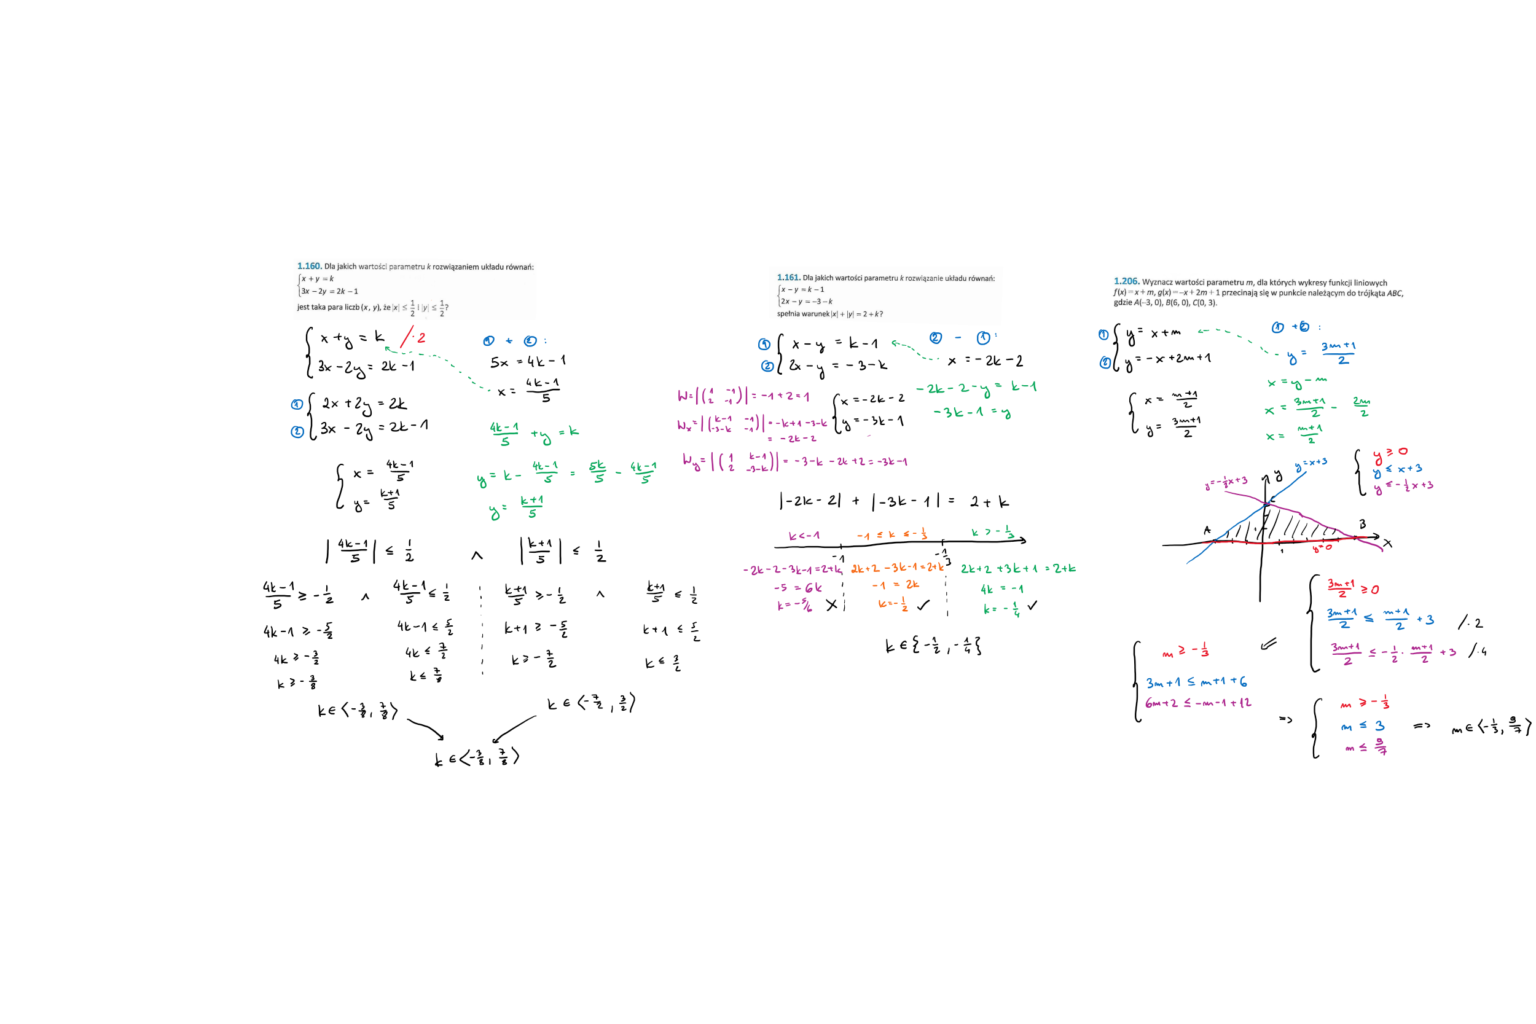 1.160. Dla jakich wartości parametru k rozwiązaniem układu równań:
{x + y = k
{3x − 2y = 2k − 1
jest taka para liczb (x, y), że |x| ≤ 1/2 i |y| ≤ 1/2?
{x + y = k /·2
{3x − 2y = 2k − 1
① {2x + 2y = 2k
② {3x − 2y = 2k − 1
① + ② :
5x = 4k − 1
x = (4k−1)/5
(4k−1)/5 + y = k
y = k − (4k−1)/5 = 5k/5 − (4k−1)/5
y = (k+1)/5
{x = (4k−1)/5
{y = (k+1)/5
|(4k−1)/5| ≤ 1/2 ∧ |(k+1)/5| ≤ 1/2
(4k−1)/5 ≥ −1/2 ∧ (4k−1)/5 ≤ 1/2 (k+1)/5 ≥ −1/2 ∧ (k+1)/5 ≤ 1/2
4k−1 ≥ −5/2 4k−1 ≤ 5/2 k+1 ≥ −5/2 k+1 ≤ 5/2
4k ≥ −3/2 4k ≤ 7/2 k ≥ −7/2 k ≤ 3/2
k ≥ −3/8 k ≤ 7/8
k ∈ ⟨−3/8, 7/8⟩ k ∈ ⟨−7/2, 3/2⟩
k ∈ ⟨−3/8, 7/8⟩
1.161. Dla jakich wartości parametru k rozwiązanie układu równań:
{x − y = k − 1
{2x − y = −3 − k
spełnia warunek |x| + |y| = 2 + k?
① {x − y = k − 1
② {2x − y = −3 − k
② − ① :
x = −2k − 2
−2k − 2 − y = k − 1
−3k − 1 = y
W = |(1 −1
2 −1)| = −1 + 2 = 1
Wx = |(k−1 −1
−3−k −1)| = −k+1 −3−k
= −2k − 2
Wy = |(1 k−1
2 −3−k)| = −3−k −2k+2 = −3k−1
{x = −2k − 2
{y = −3k − 1
|−2k − 2| + |−3k − 1| = 2 + k
k < −1 −1 ≤ k ≤ −1/3 k > −1/3
−1 −1/3
−2k−2−3k−1=2+k 2k+2−3k−1=2+k 2k+2+3k+1=2+k
−5 = 6k −1 = 2k 4k = −1
k = −5/6 ✗ k = −1/2 ✓ k = −1/4 ✓
k ∈ {−1/2, −1/4}
1.206. Wyznacz wartości parametru m, dla których wykresy funkcji liniowych
f(x) = x + m, g(x) = −x + 2m + 1 przecinają się w punkcie należącym do trójkąta ABC,
gdzie A(−3, 0), B(6, 0), C(0, 3).
① {y = x + m
② {y = −x + 2m + 1
① + ② :
y = (3m+1)/2
x = y − m
x = (3m+1)/2 − 2m/2
x = (m+1)/2
{x = (m+1)/2
{y = (3m+1)/2
y = −1/2x + 3
y
y = x+3
C
A
1
1
B
y=0
x
{y ≥ 0
{y ≤ x + 3
{y ≤ −1/2x + 3
{(3m+1)/2 ≥ 0
{(3m+1)/2 ≤ (m+1)/2 + 3 /·2
{(3m+1)/2 ≤ −1/2 · (m+1)/2 + 3 /·4
⇐
{m ≥ −1/3
{3m+1 ≤ m+1+6
{6m+2 ≤ −m−1+12
⇒ {m ≥ −1/3
{m ≤ 3
{m ≤ 9/7
⇒ m ∈ ⟨−1/3, 9/7⟩